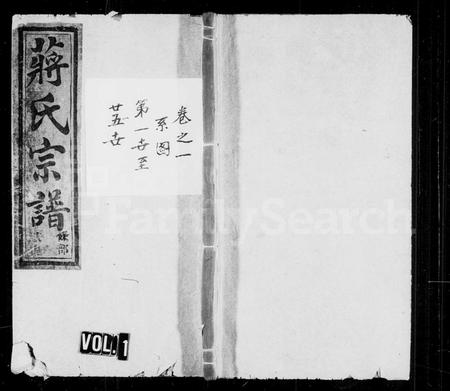 蔣氏宗譜
卷之一
系图
第一世至
廿五世
VOL. 1
FamilySearch